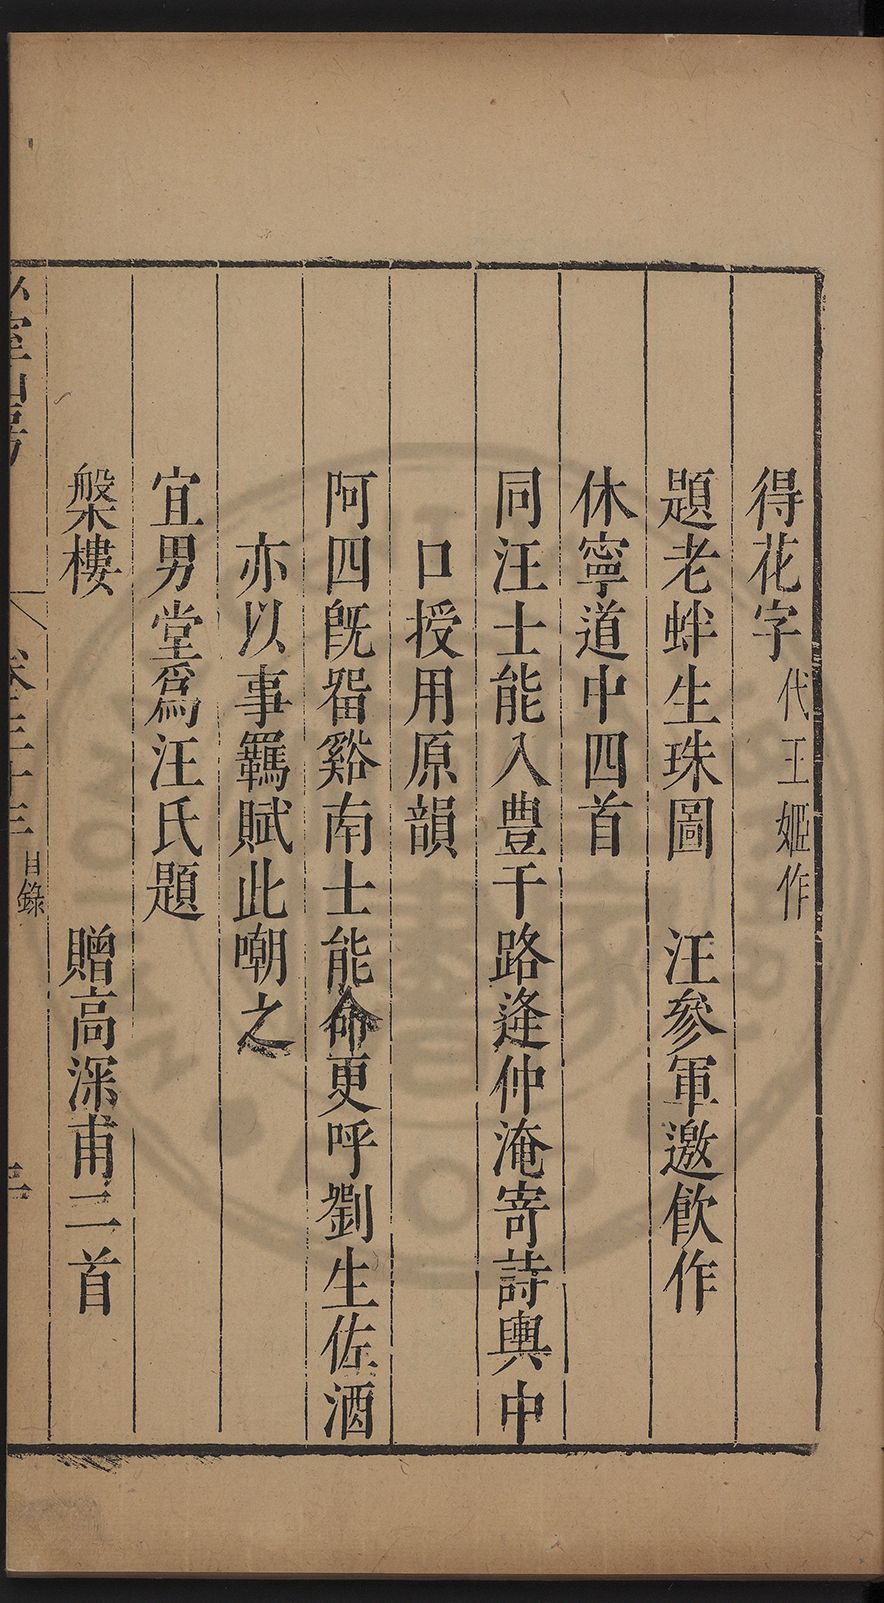 得花字代王姬作
題老蚌生珠圖　汪參軍邀飲作
休寧道中四首
同汪士能入豐干路逢仲淹寄詩輿中
口授用原韻
阿四旣畱谿南士能命更呼劉生佐酒
亦以事羈賦此嘲之
宜男堂爲汪氏題
槃樓　贈高深甫二首
卷三十三目錄